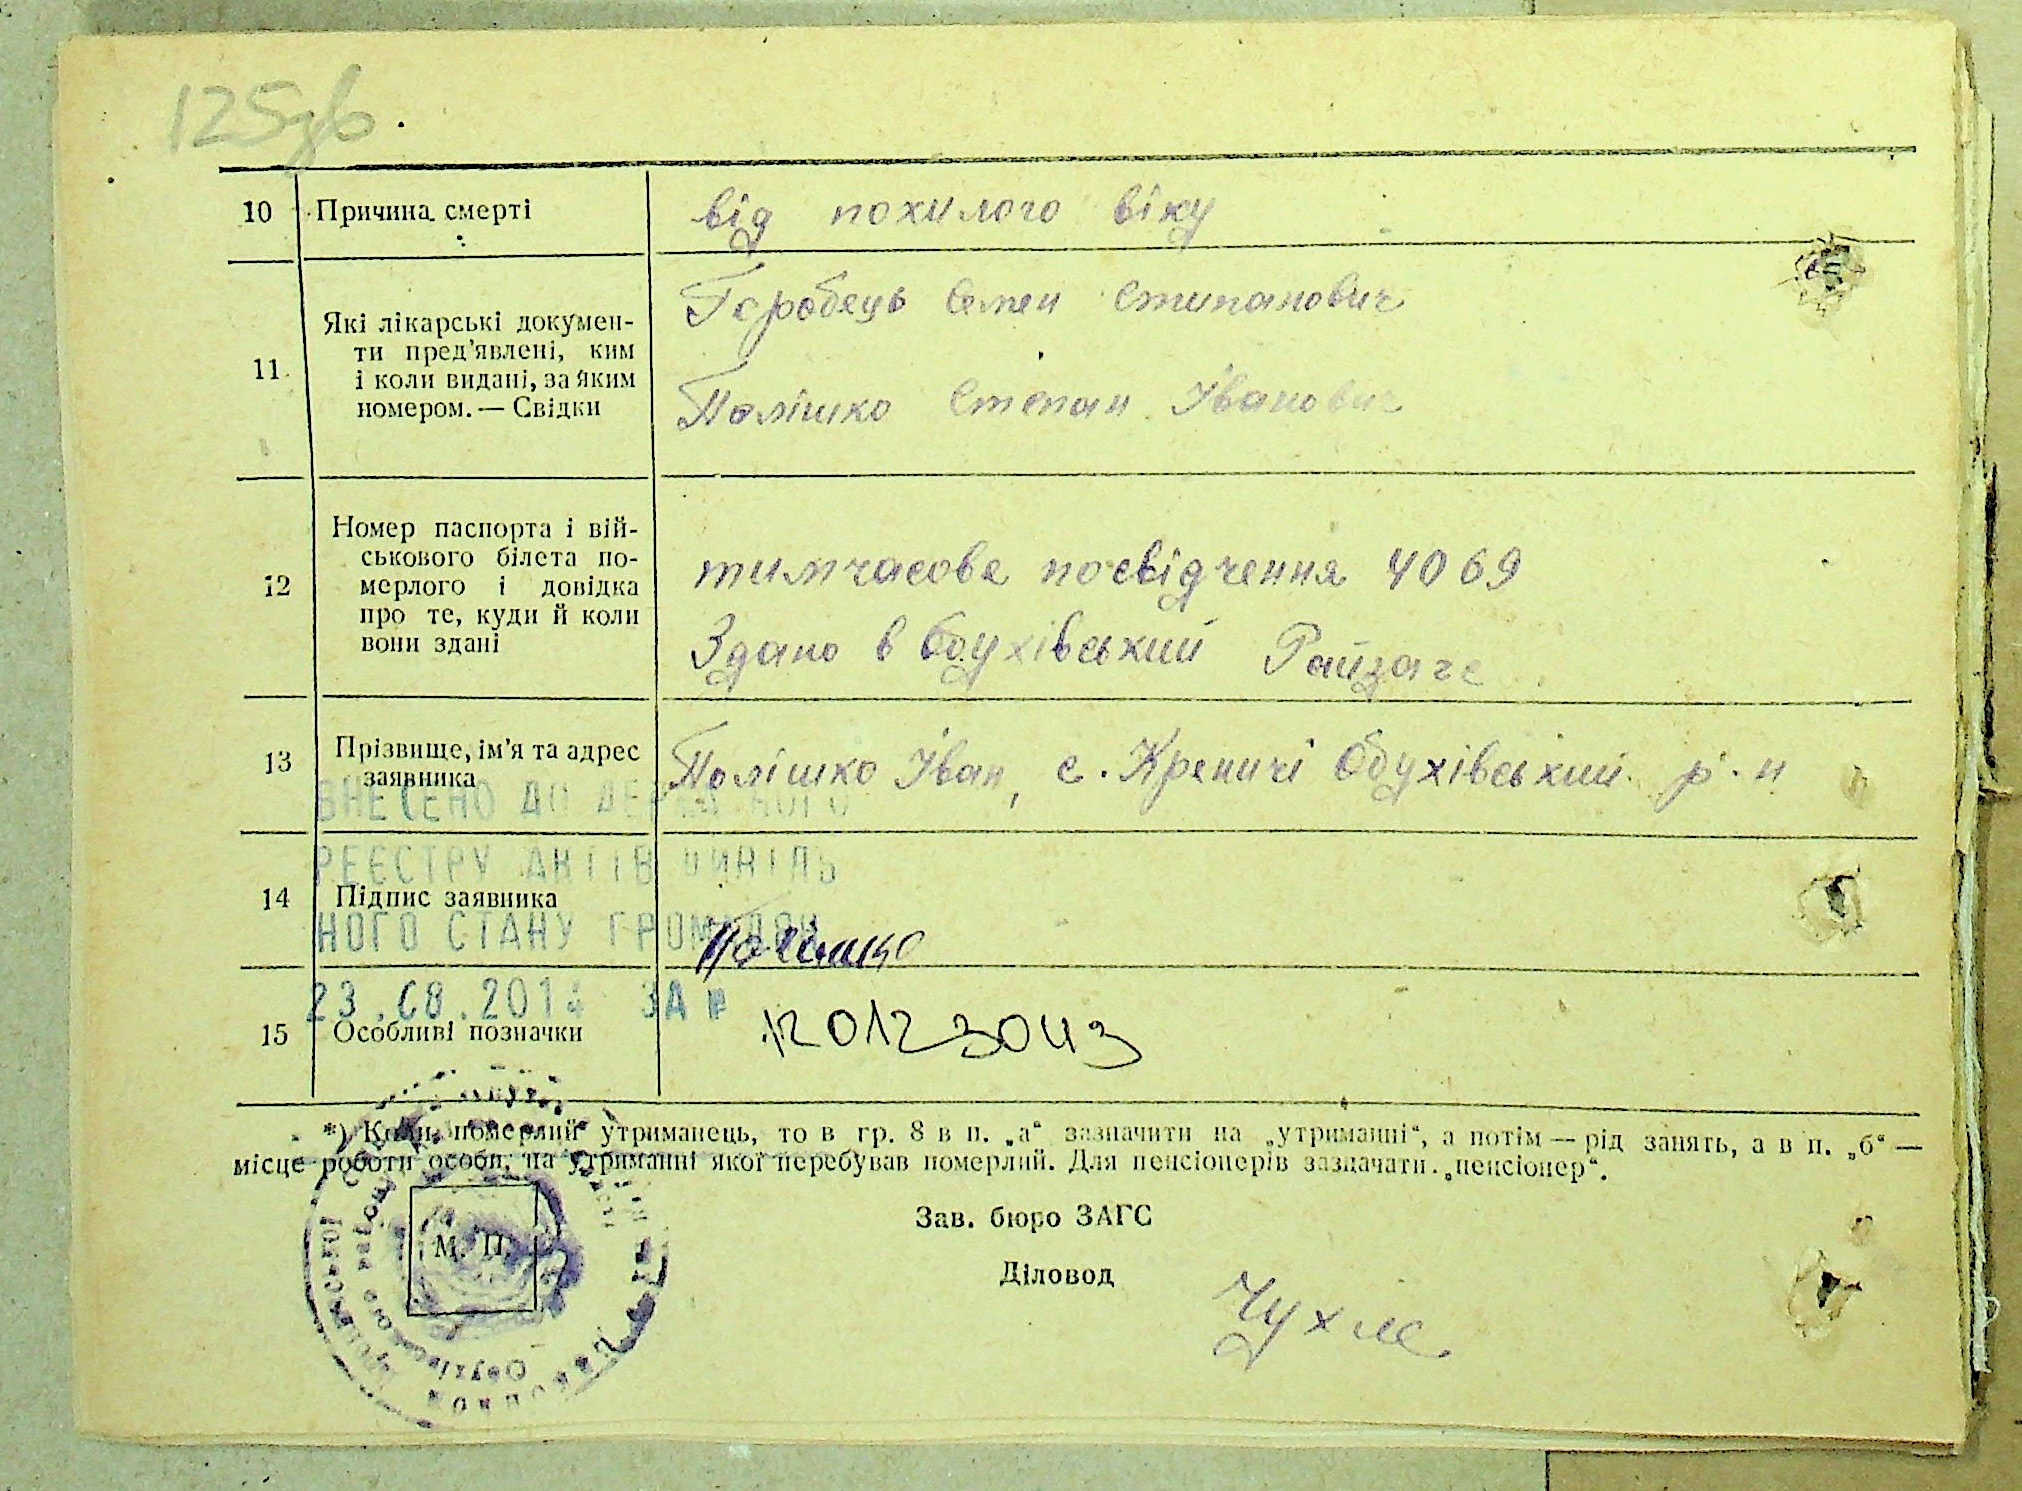 125зв.
10 Причина смерті
від похилого віку
11 Які лікарські докумен-
ти пред'явлені, ким
і коли видані, за яким
номером. — Свідки
Горобець Семен Стипанович
Полішко Степан Іванович
12 Номер паспорта і вій-
ськового білета по-
мерлого і довідка
про те, куди й коли
вони здані
тимчасове посвідчення 4069
Здано в Обухівський Райзагс
13 Прізвище, ім'я та адрес
заявника
Полішко Іван, с. Креничі Обухівський р-н
ВНЕСЕНО ДО ДЕРЖАВНОГО
РЕЄСТРУ АКТІВ ЦИВІЛЬ
14 Підпис заявника
НОГО СТАНУ ГРОМАДЯН
Полішко
23.08.201 ЗА №
15 Особливі позначки
120123043
*) Коли померлий утриманець, то в гр. 8 в п. „а“ зазначити на „утриманні“, а потім — рід занять, а в п. „б“ —
місце роботи особи, на утриманні якої перебував померлий. Для пенсіонерів зазначати „пенсіонер“.
Зав. бюро ЗАГС
М. П.
Діловод
Чухле